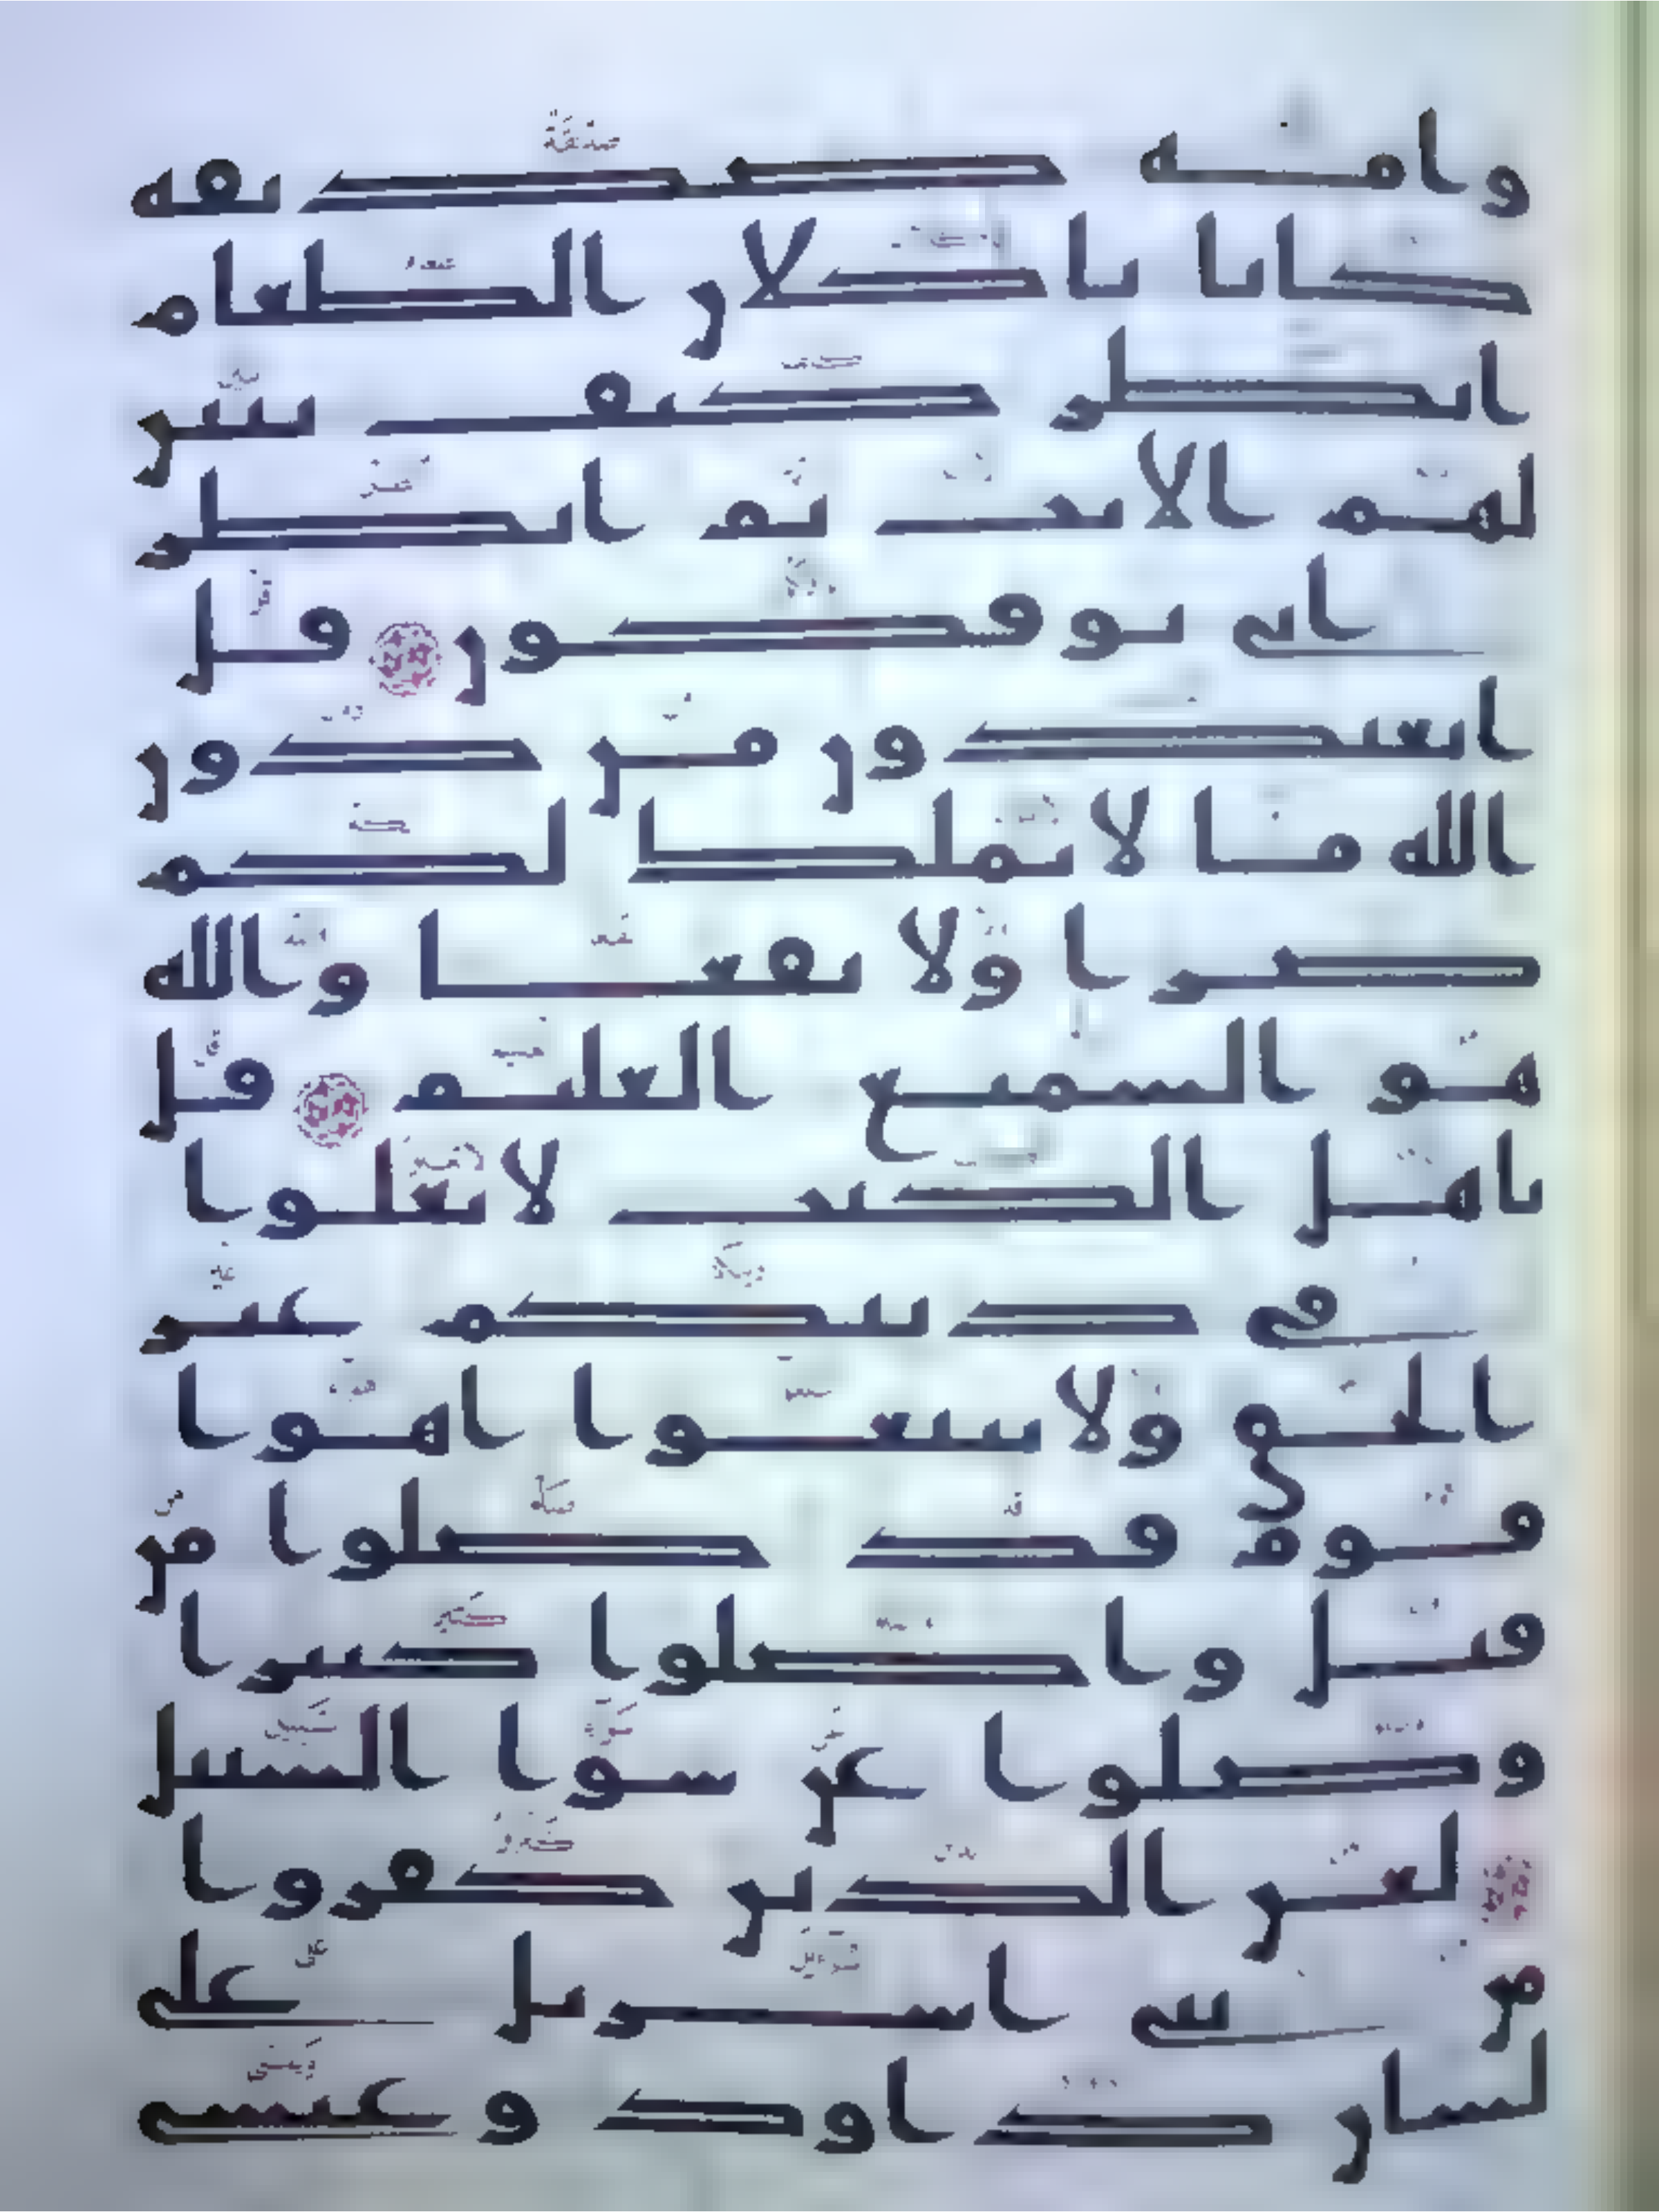 وامه صديقه
كانا ياكلان الطعام
انظر كيف نبين
لهم الايت ثم انظر
انى يوفكون قل
اتعبدون من دون
الله ما لا يملك لكم
ضرا ولا نفعا والله
هو السميع العليم قل
ياهل الكتب لا تغلوا
في دينكم غير
الحق ولا تتبعوا اهوا
قوم قد ضلوا من
قبل واضلوا كثيرا
وضلوا عن سوا السبيل
لعن الذين كفروا
من بني اسريل على
لسان داود وعيسى